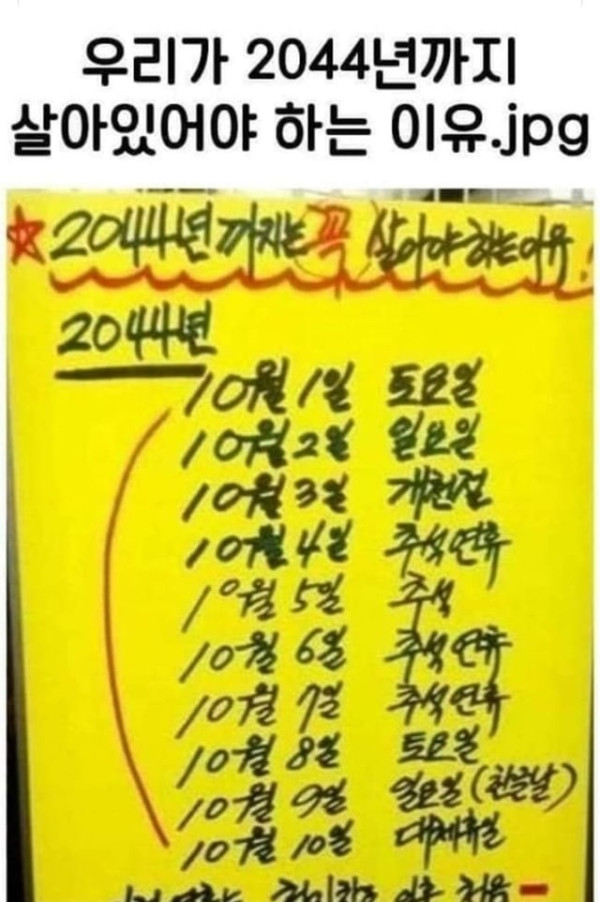 우리가 2044년까지
살아있어야 하는 이유.jpg
☆2044년까지는 꼭 살아야 하는 이유!
2044년
10월 1일 토요일
10월 2일 일요일
10월 3일 개천절
10월 4일 추석연휴
10월 5일 추석
10월 6일 추석연휴
10월 7일 추석연휴
10월 8일 토요일
10월 9일 일요일(한글날)
10월 10일 대체휴일